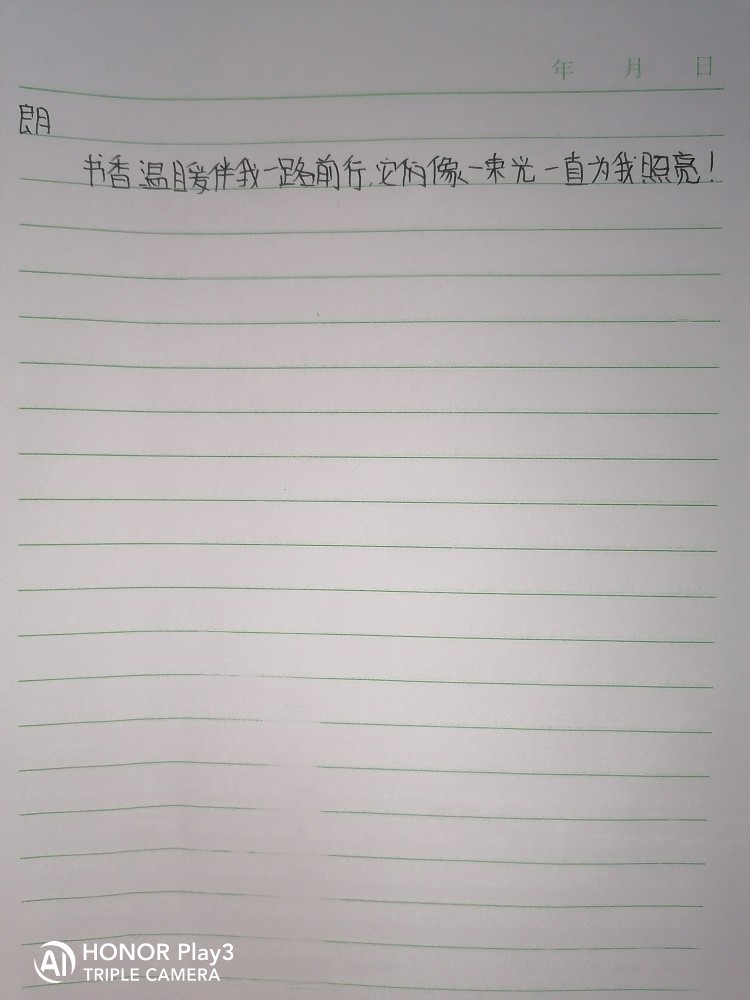 年 月 日
朗
书香温暖伴我一路前行,它们像一束光一直为我照亮!
HONOR Play3
TRIPLE CAMERA